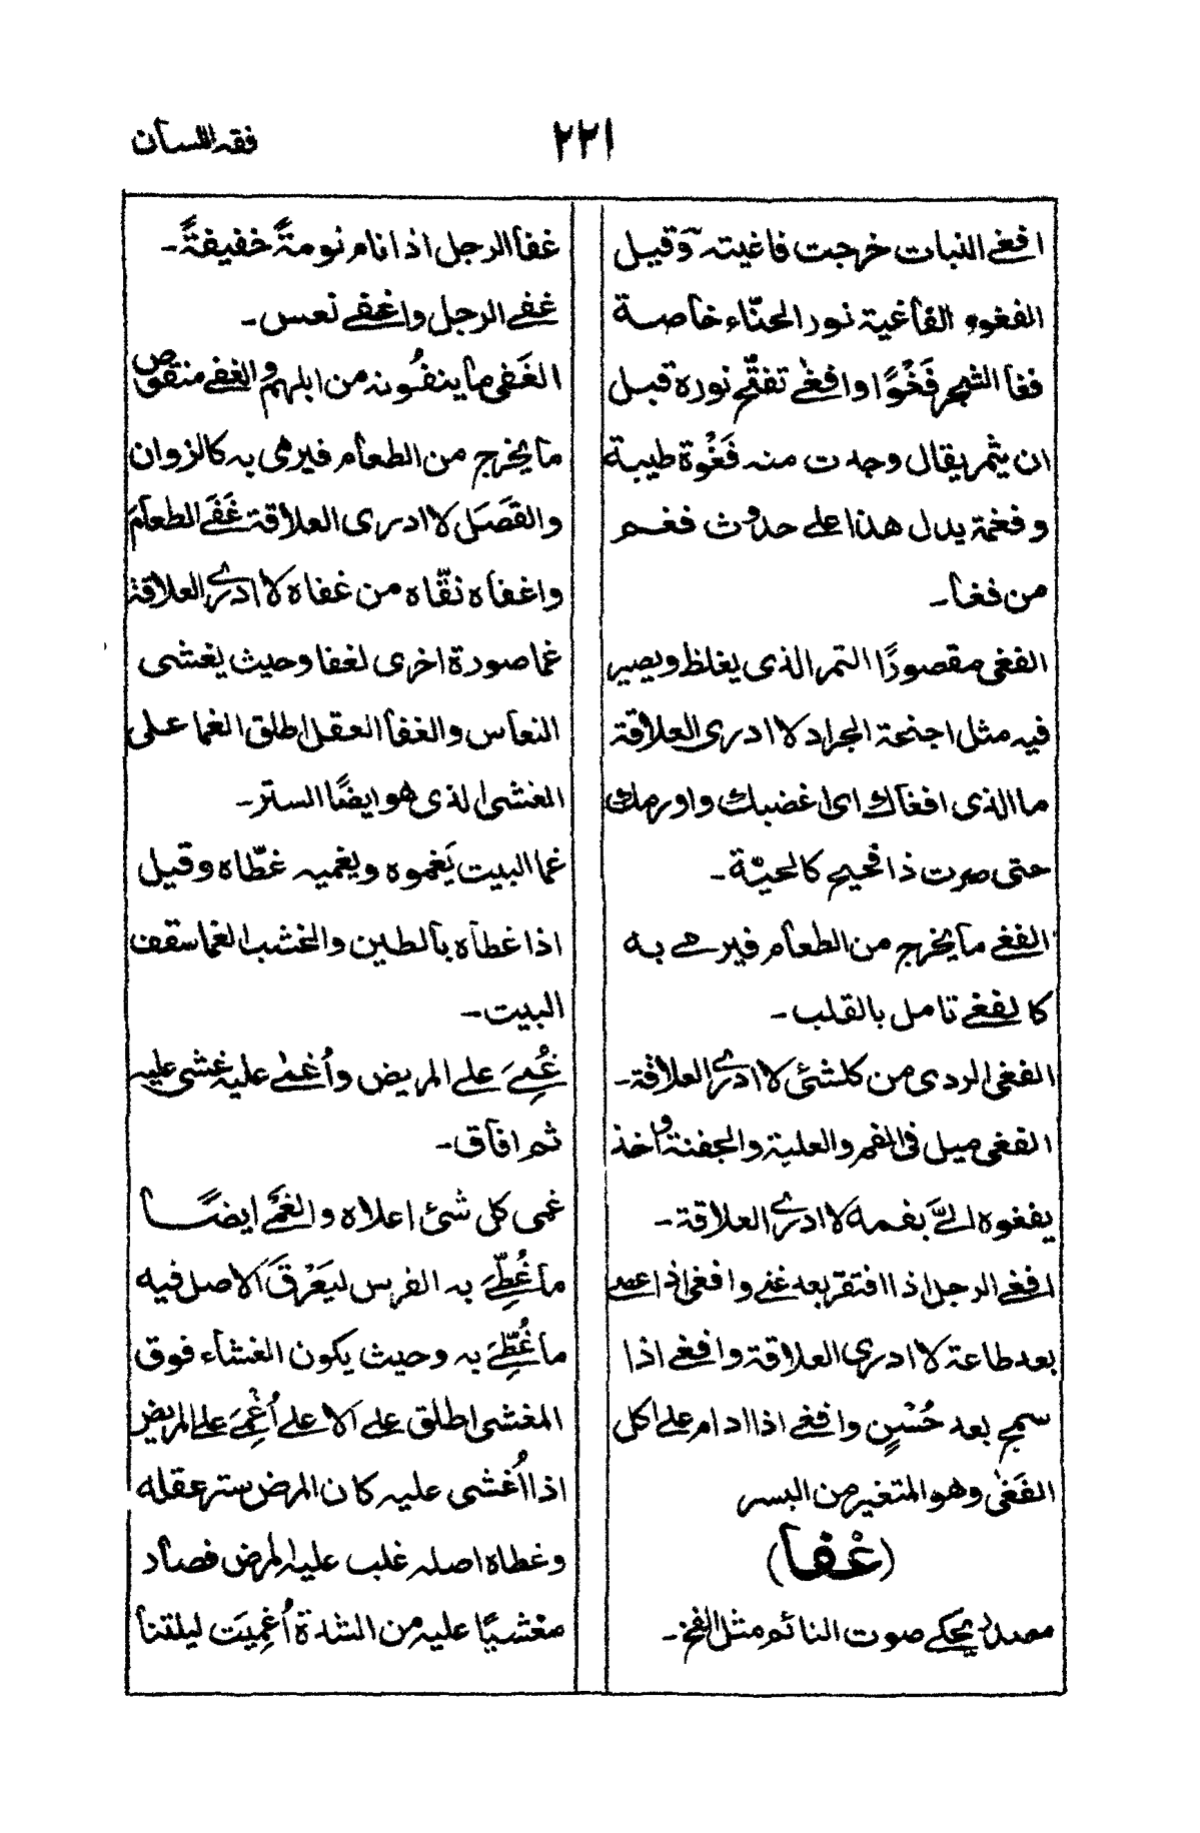 فقه اللسان
٢٢١
افغى النبات خرجت فاغيته وقيل
الفغوو الفاغية نور الحنّاء خاصة
فغا الشجر فَغْوًا وافغى تفتّح نوره قبل
ان يثمر يقال وجدت منه فَغْوة طيبة
وفغمة يدل هذا على حدوث فغم
من فغا۔
الفغى مقصورًا التمر الذى يغلظ ويصير
فيه مثل اجنحة الجراد لا ادرى العلاقة
ما الذى افغاك اى اغضبك واورمك
حتى صرت ذا فحيح كالحيّة۔
الفغى ما يخرج من الطعام فيرمى به
كالغفى تامل بالقلب۔
الفغى الردى من كلشئ لا ادرى العلاقة۔
الفغى ميل فى الفم والعلبة والجفنة واخذ
يفغوه الىّ بفمه لا ادرى العلاقة۔
افغى الرجل اذا افتقر بعد غنى وافغى اذا عصى
بعد طاعة لا ادرى العلاقة وافغى اذا
سمج بعد حُسْنٍ وافغى اذا ادام على اكل
الفَغَى وهو المتغير من البسر
(غفا)
مصدر يحكى صوت النائم مثل الفخ۔
غفا الرجل اذا نام نومةً خفيفةً۔
غفى الرجل واغفى نعس۔
الغَفى ما ينفُونه من ابلهم والغفى منقوص
ما يخرج من الطعام فيرمى به كالزوان
والقَصَل لا ادرى العلاقة غَفَى الطعام
واغفاه نقّاه من غفاه لا ادرى العلاقة
غما صورة اخرى لغفا وحيث يغشى
النعاس والغفا العقل اطلق الغما على
الغشى الذى هو ايضًا الستر۔
غما البيت يَغموه ويغميه غطّاه وقيل
اذا غطاه بالطين والخشب الغما سقف
البيت۔
غُمِىَ على المريض وأُغمى عليه غشى عليه
ثم افاق۔
غمى كل شئ اعلاه والغَمَى ايضًا
ما غُطِّىَ به الفرس ليَعْرَقَ الاصل فيه
ما غُطِّىَ به وحيث يكون الغشاء فوق
المغشى اطلق على الاعلى أُغْمِىَ على المريض
اذا اُغشى عليه كان المرض ستر عقله
وغطاه اصله غلب عليه المرض فصاد
مغْشيًا عليه من الشدة أُغمِيَت ليلقنا